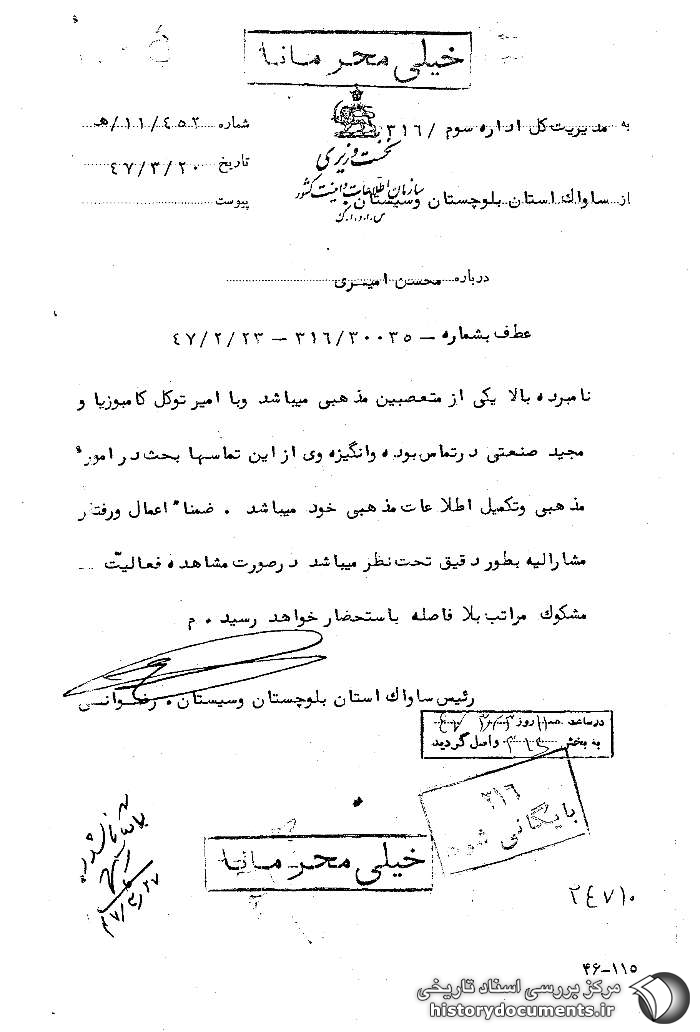 خیلی محرمانه
به مدیریت کل اداره سوم /۳۱۶
شماره ۴۵۲/۱۱/هـ
نخست وزیری
تاریخ ۴۷/۳/۲۰
سازمان اطلاعات و امنیت کشور
از ساواک استان بلوچستان وسیستان
پیوست
س.ا.و.ا.ک
درباره محسن امیری
عطف بشماره – ۳۱۶/۳۰۰۳۵ – ۴۷/۲/۲۳
نامبرده بالا یکی از متعصبین مذهبی میباشد وبا امیر توکل کامبوزیا و
مجید صنعتی درتماس بوده وانگیزه وی از این تماسها بحث در امور
مذهبی وتکمیل اطلاعات مذهبی خود میباشد . ضمنا" اعمال ورفتار
مشارالیه بطور دقیق تحت نظر میباشد درصورت مشاهده فعالیت
مشکوک مراتب بلافاصله باستحضار خواهد رسید . م
رئیس ساواک استان بلوچستان وسیستان
در ساعت روز
به بخش ۳۱۶ واصل گردید
۳۱۶
بایگانی شود
خیلی محرمانه
۴۷/۳/۲۷
۲۴۷۱۰
۴۶-۱۱۵
مرکز بررسی اسناد تاریخی
historydocuments.ir